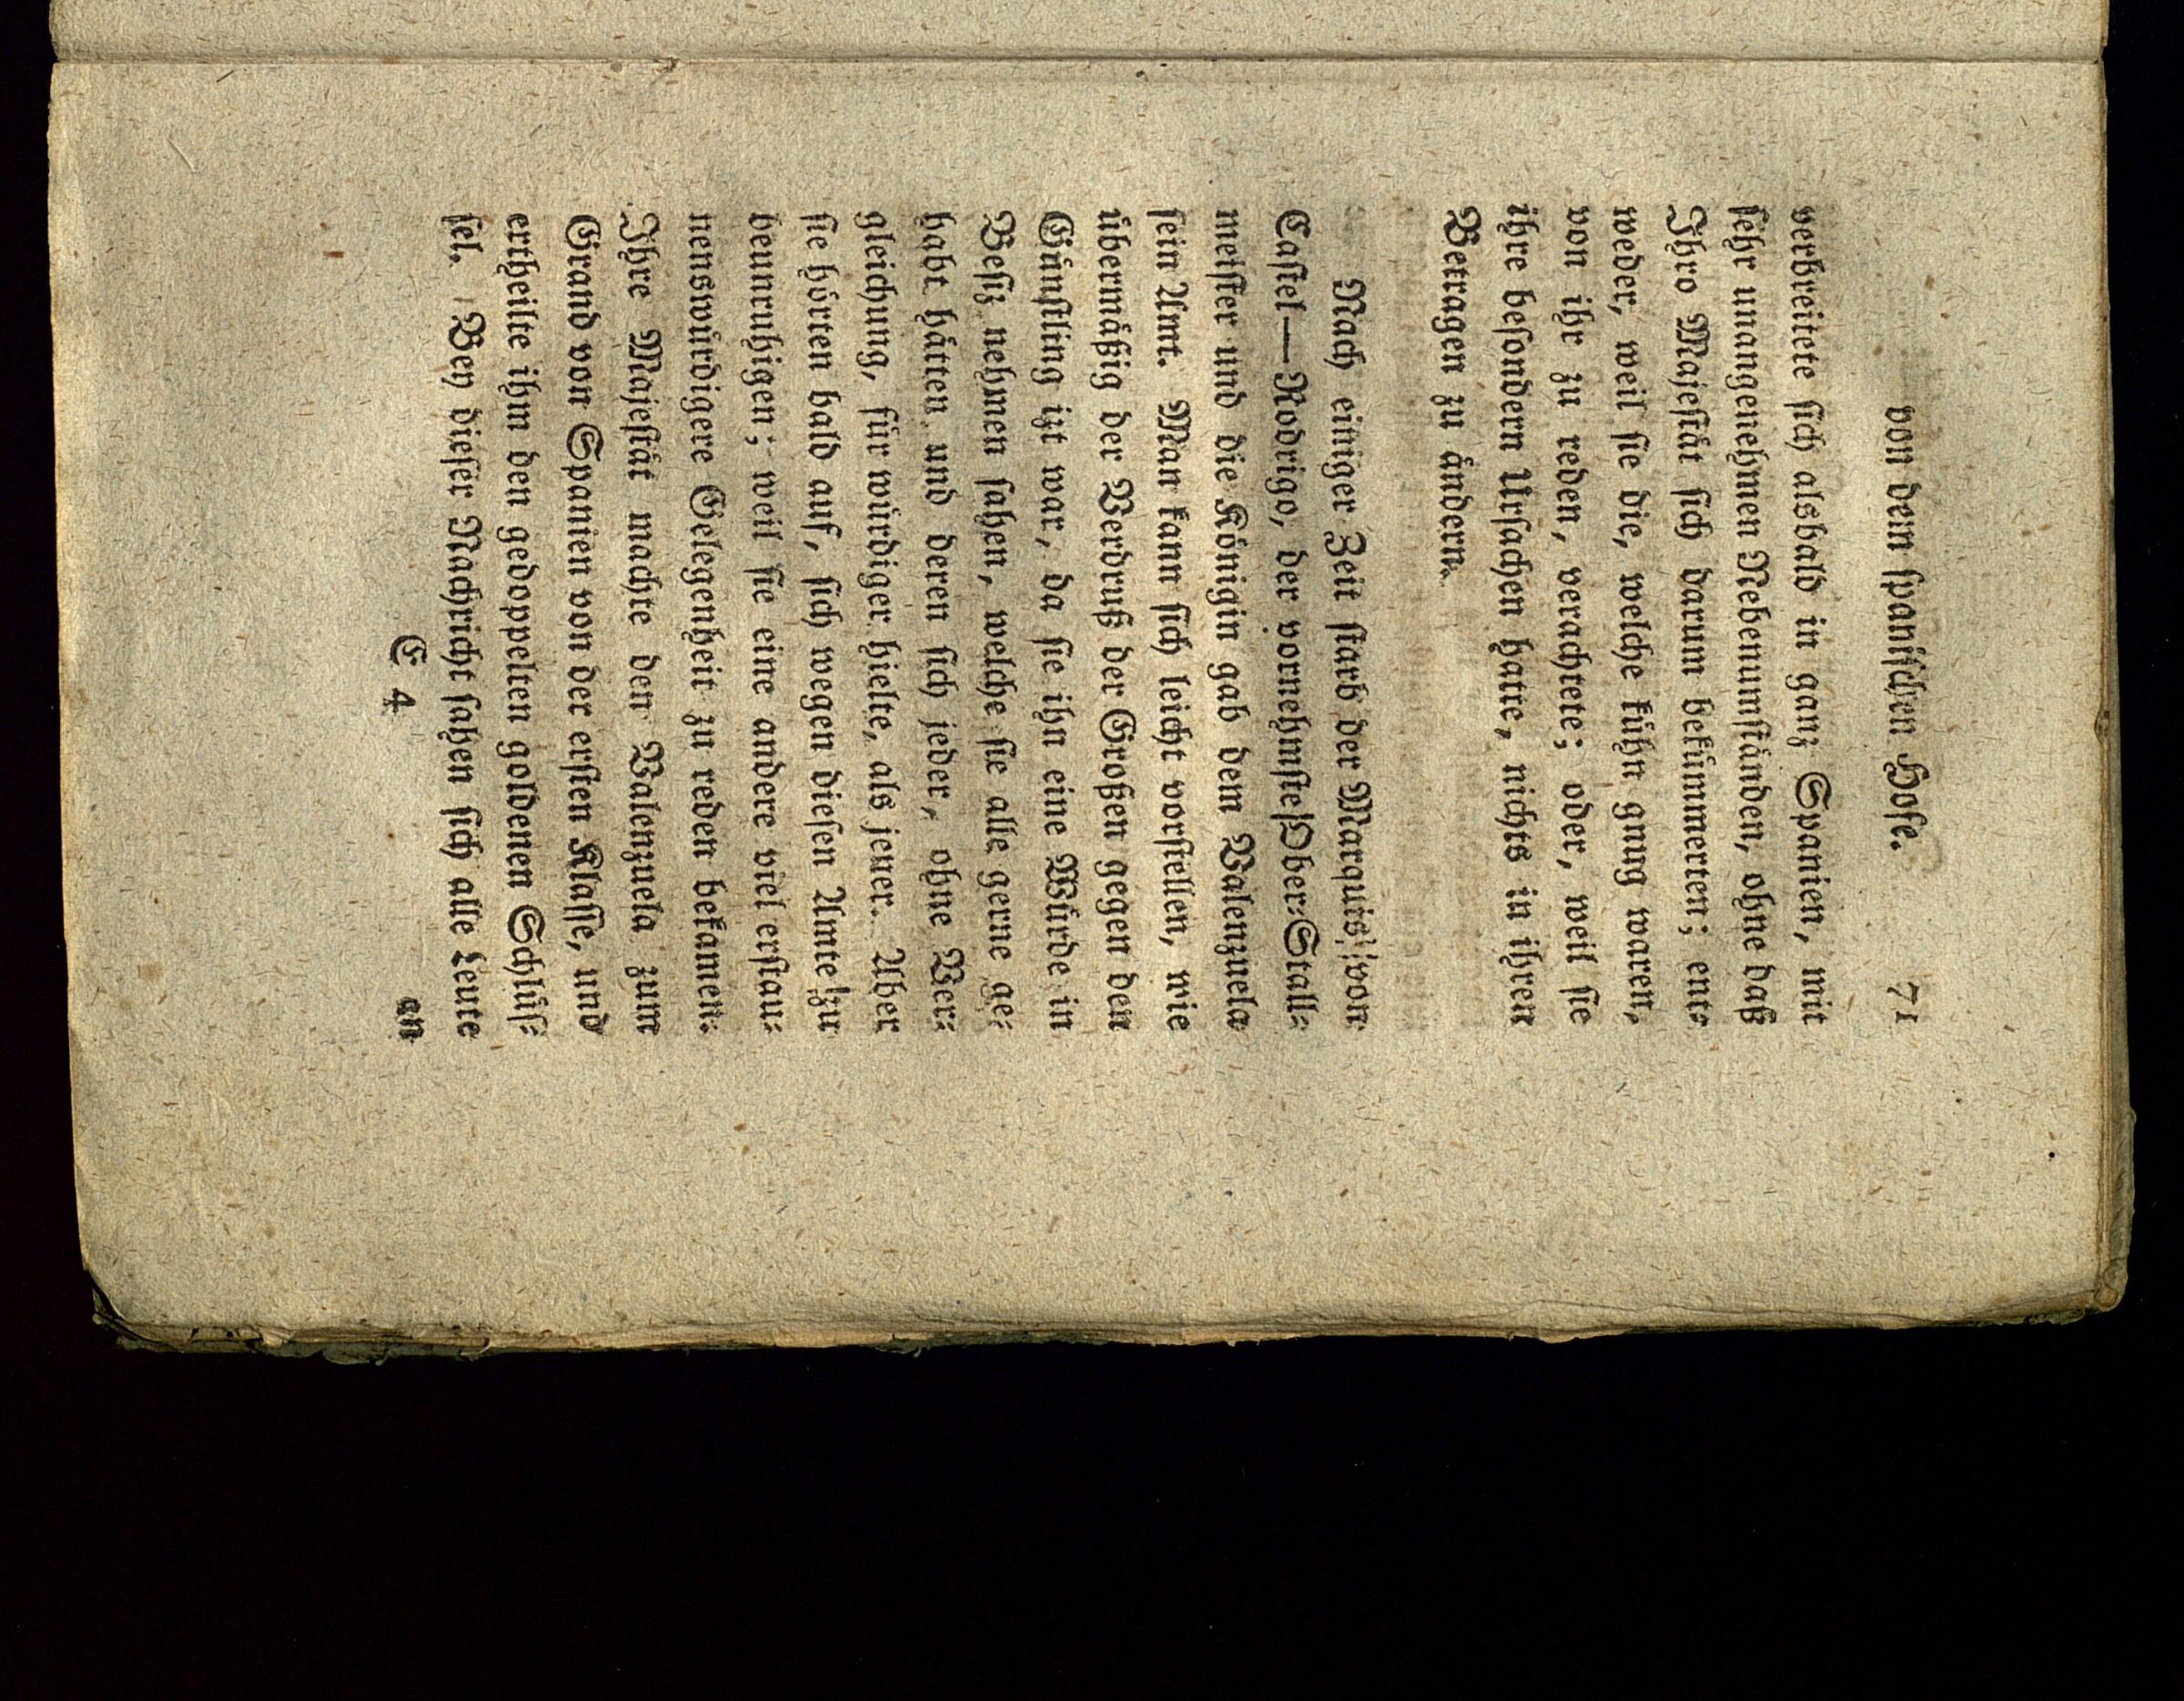 von dem ſpaniſchen Hofe. 71
verbreitete ſich alsbald in ganz Spanien, mit
ſehr unangenehmen Nebenumſtänden, ohne daß
Ihro Majeſtät ſich darum bekümmerten; ent⸗
weder, weil ſie die, welche kühn gnug waren,
von ihr zu reden, verachtete; oder, weil ſie
ihre beſondern Urſachen hatte, nichts in ihren
Betragen zu ändern.
Nach einiger Zeit ſtarb der Marquis von
Caſtel—Rodrigo, der vornehmſte Ober⸗Stall⸗
meiſter und die Königin gab dem Valenzuela
ſein Amt. Man kann ſich leicht vorſtellen, wie
übermäßig der Verdruß der Großen gegen den
Günſtling izt war, da ſie ihn eine Würde in
Beſiz nehmen ſahen, welche ſie alle gerne ge⸗
habt hätten und deren ſich jeder, ohne Ver⸗
gleichung, für würdiger hielte, als jener. Aber
ſie hörten bald auf, ſich wegen dieſen Amte zu
beunruhigen; weil ſie eine andere viel erſtau⸗
nenswürdigere Gelegenheit zu reden bekamen.
Ihre Majeſtät machte den Valenzuela zum
Grand von Spanien von der erſten Klaſſe, und
ertheilte ihm den gedoppelten goldenen Schlüſ⸗
ſel. Bey dieſer Nachricht ſahen ſich alle Leute
E 4 an